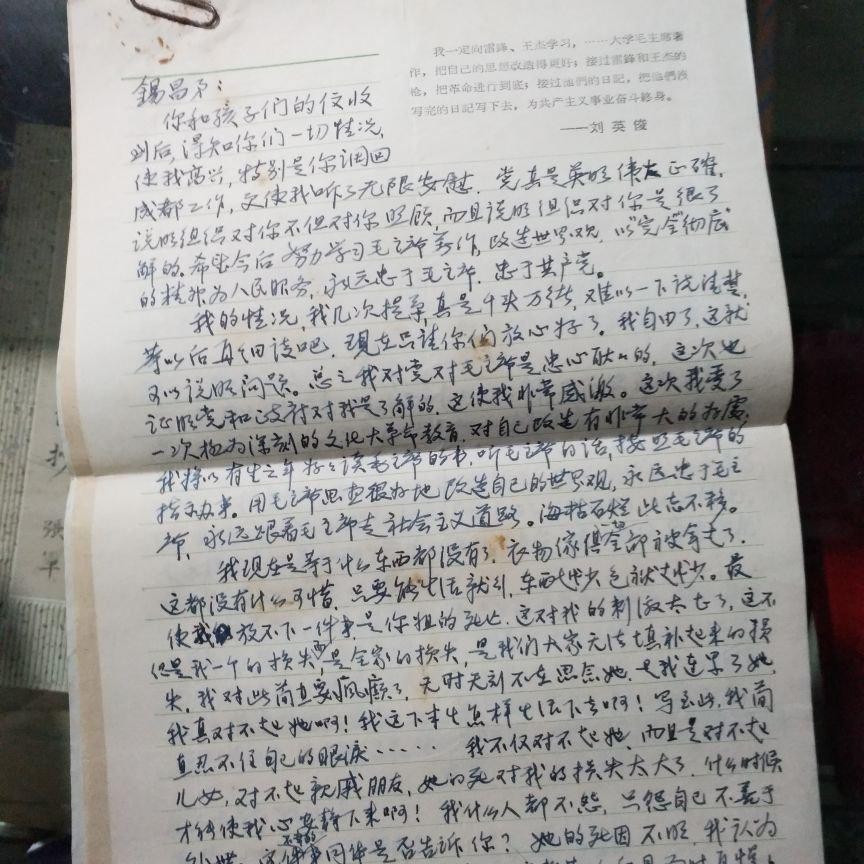 我一定向雷鋒、王杰学习，……大学毛主席著
作，把自己的思想改造得更好；接过雷鋒和王杰的
枪，把革命进行到底；接过他們的日記，把他們没
写完的日記写下去，为共产主义事业奋斗終身。
——刘英俊
錫昌弟：
你和孩子们的信收
到后，得知你们一切情况，
使我高兴，特别是你调回
成都工作，又使我吁了无限安慰。党真是英明伟大正确，
说明组织对你不但对你照顾，而且说明组织对你是很了
解的。希望今后努力学习毛主席著作，改造世界观，以"完全""彻底"
的精神为人民服务，永远忠于毛主席，忠于共产党。
我的情况，我几次提笔，真是千头万绪，难以一下说清楚，
等以后再细谈吧，现在只请你们放心好了。我自由了，这就
可以说明问题。总之我对党对毛主席是忠心耿耿的，这次也
证明党和政府对我是了解的，这使我非常感激。这次我受了
一次极为深刻的文化大革命教育，对自己改造有非常大的好处，
我将以有生之年好好读毛主席的书，听毛主席的话，按照毛主席的
指示办事。用毛主席思想很好地改造自己的世界观，永远忠于毛主
席，永远跟着毛主席走社会主义道路。海枯石烂此志不移。
我现在是等于什么东西都没有了，衣物傢俱全部被拿走了，
这都没有什么可惜，只要能生活就行，东西越少包袱越少。最
使我放不下一件事是你姐的死亡，这对我的刺激太大了，这不
但是我一个的损失，是全家的损失，是我们大家无法填补起来的损
失，我对此简直要疯癫了，无时无刻不在思念她，是我连累了她，
我真对不起她啊！我这下半生怎样生活下去啊！写到此，我简
直忍不住自己的眼淚……我不仅对不起她，而且是对不起
儿女，对不起親戚朋友，她的死对我的损失太大了，什么时候
才能使我心安静下来啊！我什么人都不怨，只怨自己不善于
这件 是否告诉你？她的死因不明，我认为